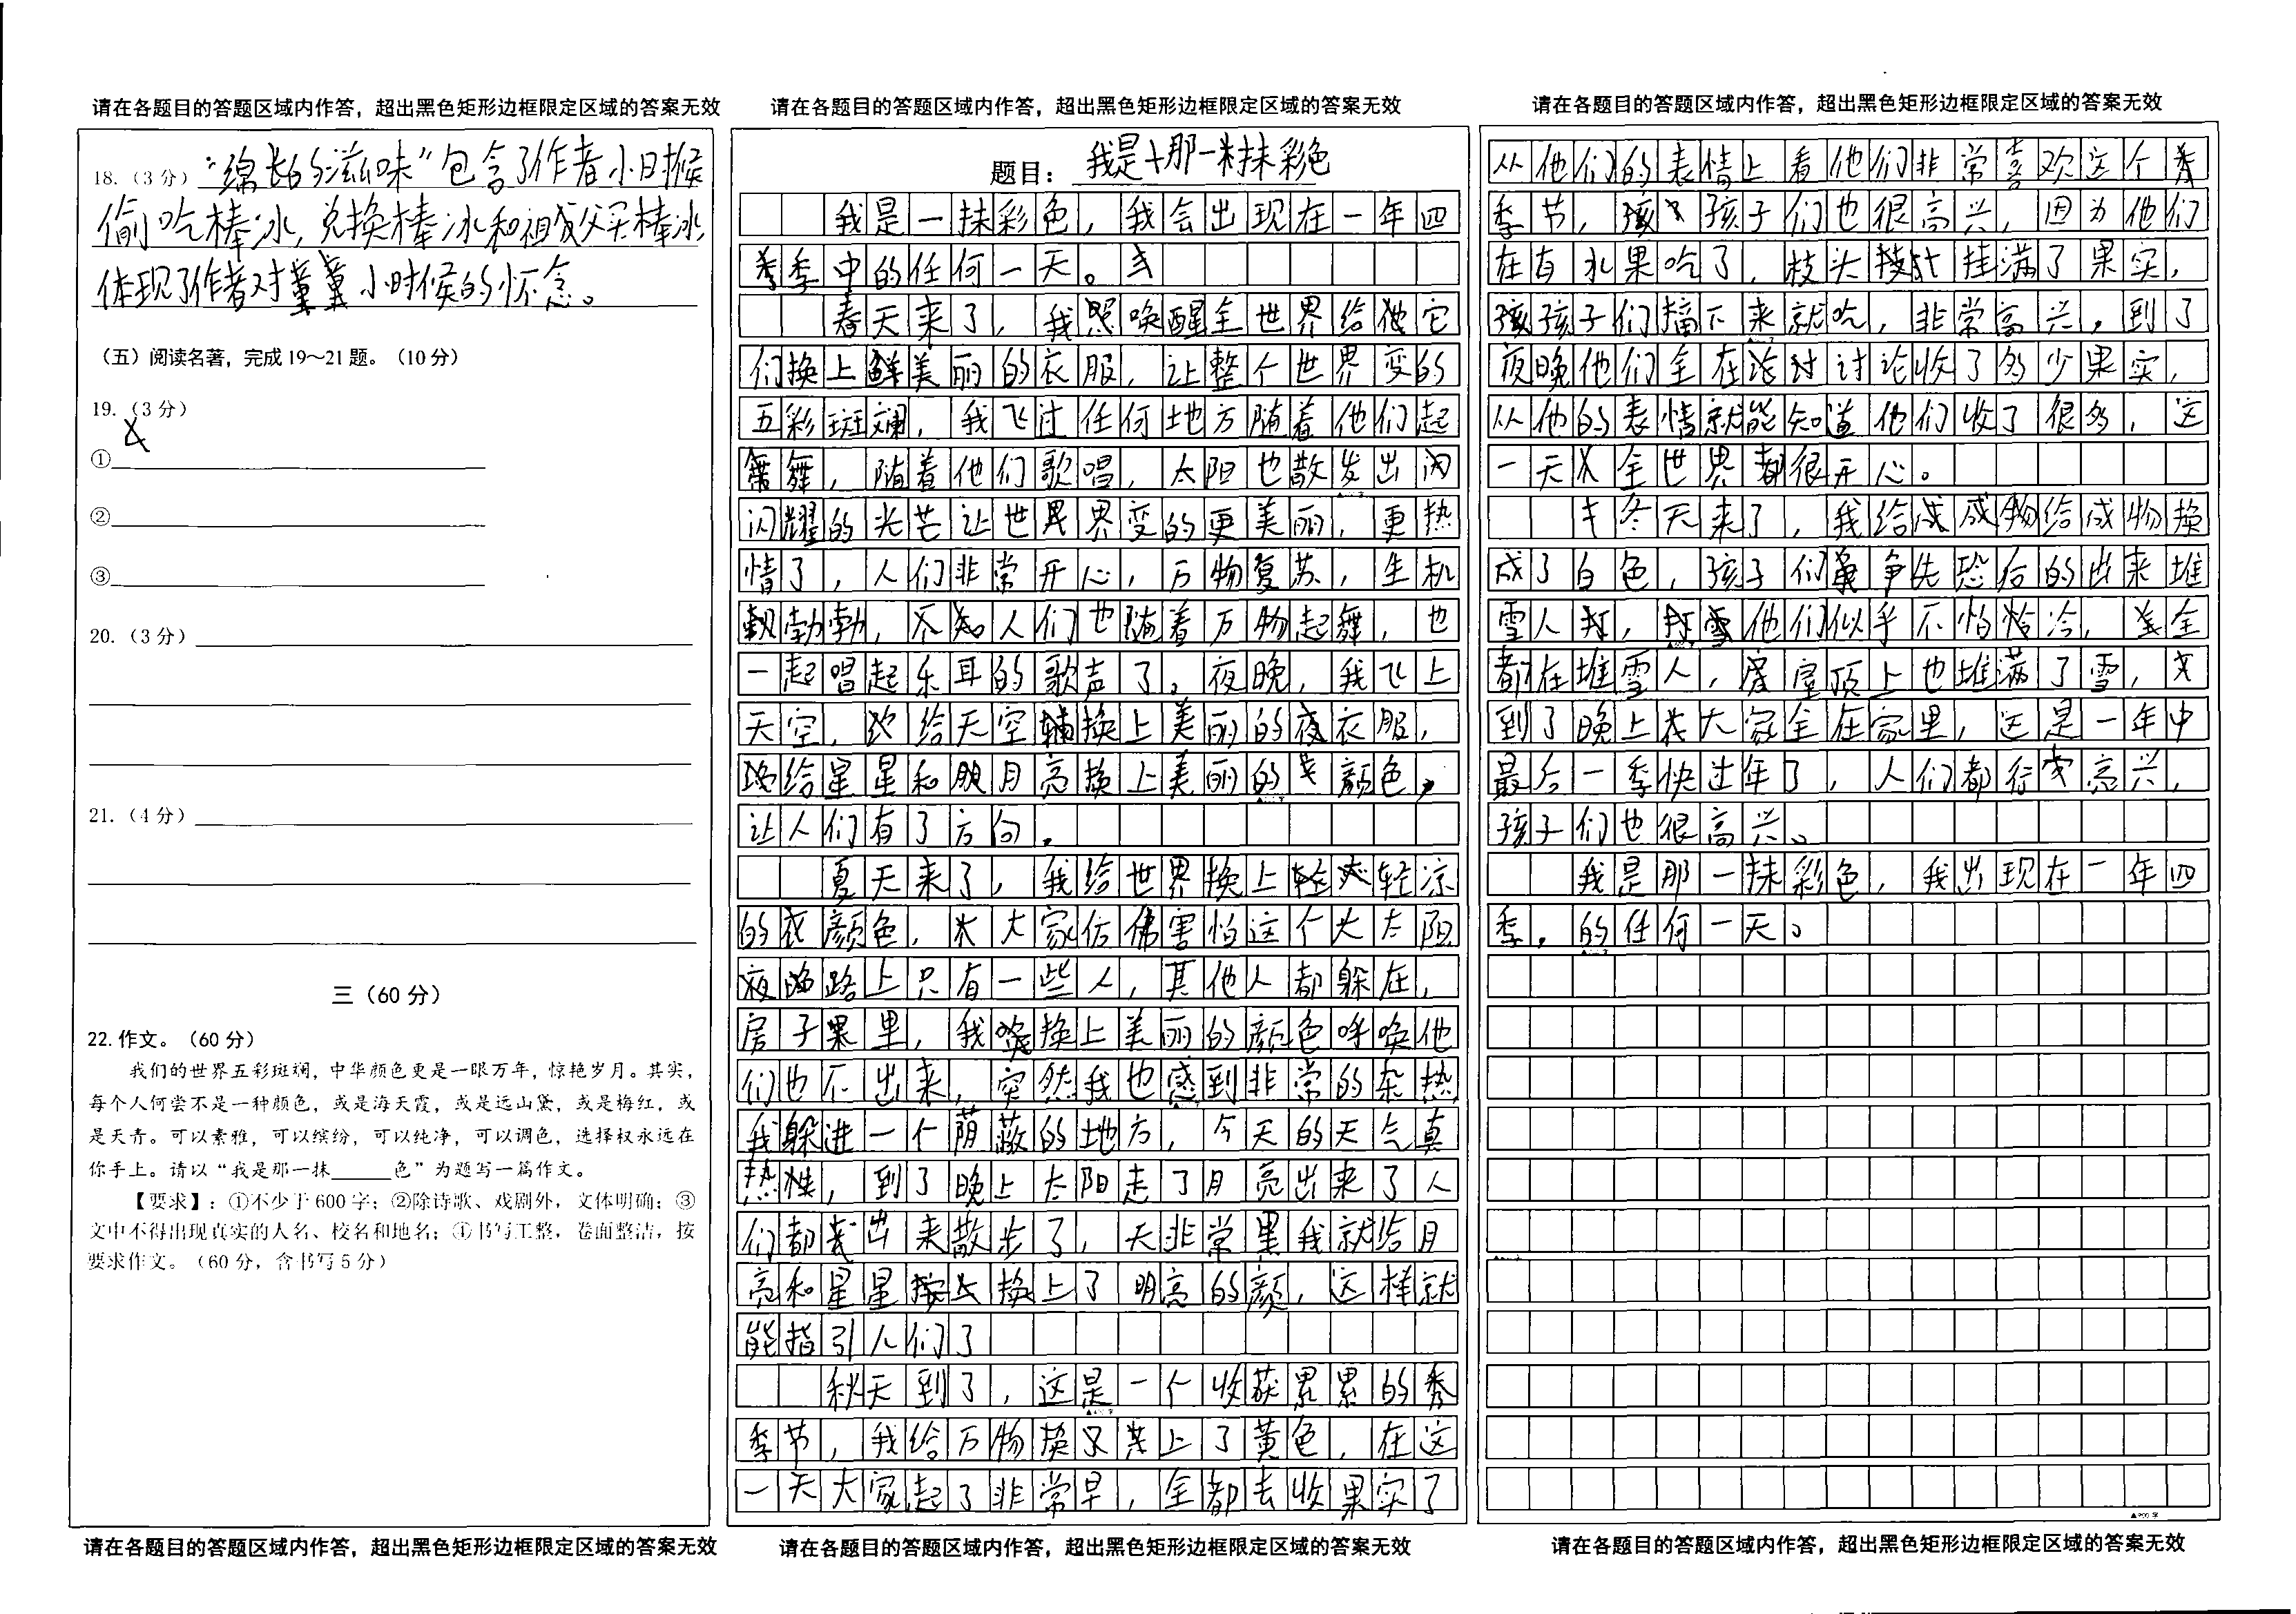 请在各题目的答题区域内作答，超出黑色矩形边框限定区域的答案无效
18.（3分）“绵长的滋味”包含了作者小时候
偷吃棒冰，兑换棒冰和祖父买棒冰
体现了作者对小时候的怀念。
（五）阅读名著，完成19～21题。（10分）
19.（3分）
①
②
③
20.（3分）
21.（4分）
三（60分）
22.作文。（60分）
我们的世界五彩斑斓，中华颜色更是一眼万年，惊艳岁月。其实，
每个人何尝不是一种颜色，或是海天霞，或是远山黛，或是梅红，或
是天青。可以素雅，可以缤纷，可以纯净，可以调色，选择权永远在
你手上。请以“我是那一抹______色”为题写一篇作文。
【要求】：①不少于600字；②除诗歌、戏剧外，文体明确；③
文中不得出现真实的人名、校名和地名；④书写工整，卷面整洁，按
要求作文。（60分，含书写5分）
请在各题目的答题区域内作答，超出黑色矩形边框限定区域的答案无效
请在各题目的答题区域内作答，超出黑色矩形边框限定区域的答案无效
题目：我是那一抹彩色
我是一抹彩色，我会出现在一年四
季中的任何一天。
春天来了，我唤醒全世界给它
们换上美丽的衣服，让整个世界变的
五彩斑斓，我飞过任何地方随着他们起
舞，随着他们歌唱，太阳也散发出闪
闪耀的光芒让世界变的更美丽，更热
情了，人们非常开心，万物复苏，生机
勃勃，人们也随着万物起舞，也
一起唱起乐耳的歌声了。夜晚，我飞上
天空，给天空换上美丽的衣服，
给星星和月亮换上美丽的颜色，
让人们有了方向。
夏天来了，我给世界换上轻凉
的颜色，大家仿佛害怕这个大太阳
路上只有一些人，其他人都躲在，
房子里，我换上美丽的颜色呼唤他
们也不出来，突然我也感到非常的杂热
我躲进一个荫蔽的地方，今天的天气真
热，到了晚上太阳走了月亮出来了人
们都出来散步了，天非常黑我就给月
亮和星星换上了明亮的颜，这样就
能指引人们了
秋天到了，这是一个收获累累的
季节，我给万物换上了黄色，在这
一天大家起了非常早，全都去收果实了
请在各题目的答题区域内作答，超出黑色矩形边框限定区域的答案无效
请在各题目的答题区域内作答，超出黑色矩形边框限定区域的答案无效
从他们的表情上看他们非常喜欢这个
季节，孩子们也很高兴，因为他们
在有水果吃了，枝头挂满了果实，
孩子们摘下来就吃，非常高兴，到了
夜晚他们全在讨论收了多少果实，
从他的表情就能知道他们收了很多，这
一天全世界都很开心。
冬天来了，我给万物换
成了白色，孩子们争先恐后的出来堆
雪人，他们似乎不怕冷，全
都在堆雪人，屋顶上也堆满了雪，
到了晚上大家全在家里，这是一年中
最后一季快过年了，人们都很高兴，
孩子们也很高兴。
我是那一抹彩色，我出现在一年四
季，的任何一天。
▲900字
请在各题目的答题区域内作答，超出黑色矩形边框限定区域的答案无效